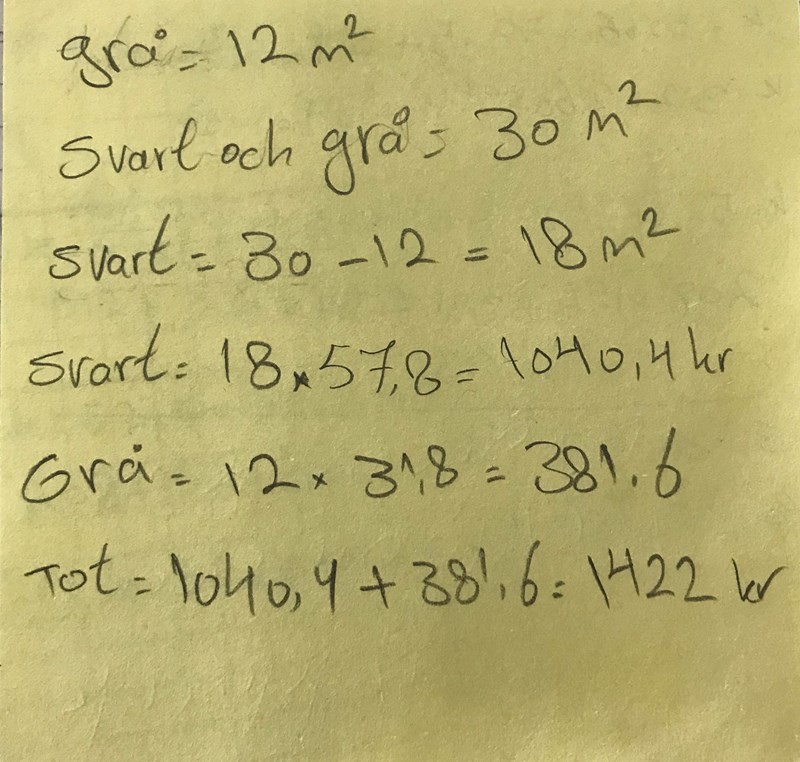 grå = 12 m²
Svart och grå = 30 m²
svart = 30 - 12 = 18 m²
Svart = 18 × 57,8 = 1040,4 kr
Grå = 12 × 31,8 = 381.6
Tot = 1040,4 + 381,6 = 1422 kr